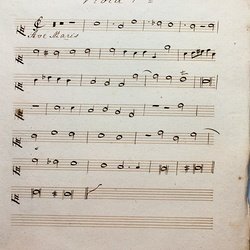 Viola
Ave Maris